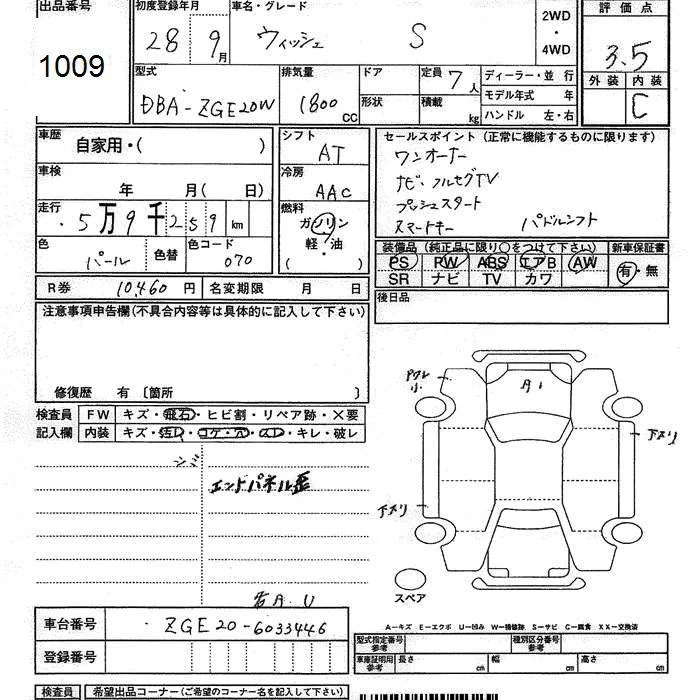 出品番号
1009
初度登録年月
28 9月
車名・グレード
ウィッシュ S
2WD
・
4WD
評価点
3.5
外装 内装
C
型式
DBA-ZGE20W
排気量
1800cc
ドア
形状
定員 7人
積載 kg
ディーラー・並行
モデル年式 年
ハンドル 左・右
車歴 自家用・( )
車検
年 月( 日)
走行
5万9千259 km
色 パール
色替
色コード 070
シフト
AT
冷房
AAC
燃料
ガソリン
軽・油
( )
セールスポイント(正常に機能するものに限ります)
ワンオーナー
ナビ・フルセグTV
プッシュスタート
スマートキー パドルシフト
装備品(純正品に限り〇をつけて下さい)
PS PW ABS エアB AW
SR ナビ TV カワ
新車保証書
有・無
R券 10,460円
名変期限 月 日
後日品
注意事項申告欄(不具合内容等は具体的に記入して下さい)
修復歴 有〔箇所 〕
検査員
記入欄
FW キズ・飛石・ヒビ割・リペア跡・×要
内装 キズ・汚レ・コゲ・穴・スレ・キレ・破レ
エンドパネル歪
小
A1
下スリ
下スリ
スペア
A-キズ E-エクボ U-凹み W-補修跡 S-サビ C-腐食 XX-交換済
車台番号 ZGE20-6033446
登録番号
型式指定番号
参考
種別区分番号
参考
車庫証明用
参考
長さ cm
幅 cm
高さ cm
検査員
希望出品コーナー(ご希望のコーナー名を記入して下さい)